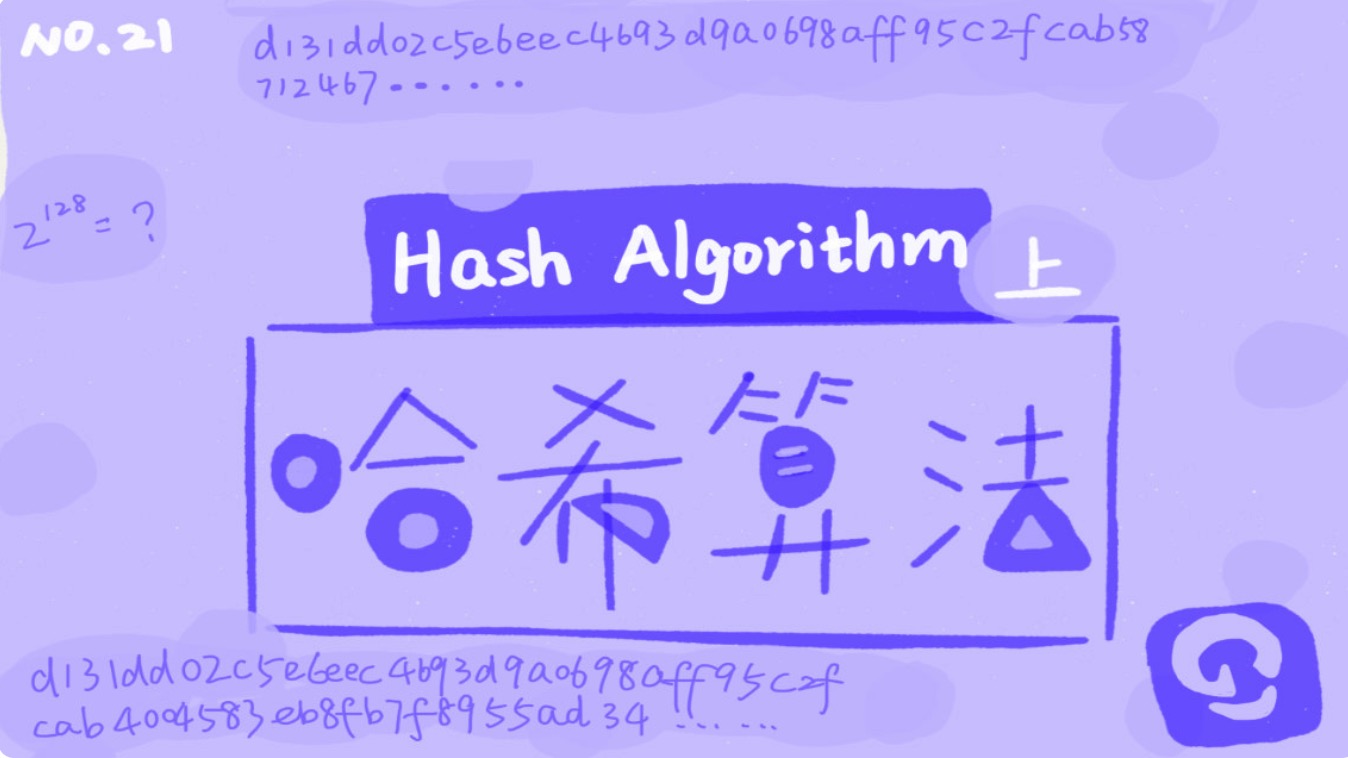 NO.21
d131dd02c5e6eec4693d9a0698aff95c2fcab58
712467......
2^128=?
Hash Algorithm 上
哈希算法
d131dd02c5e6eec4693d9a0698aff95c2f
cab4004583eb8fb7f8955ad34 ......